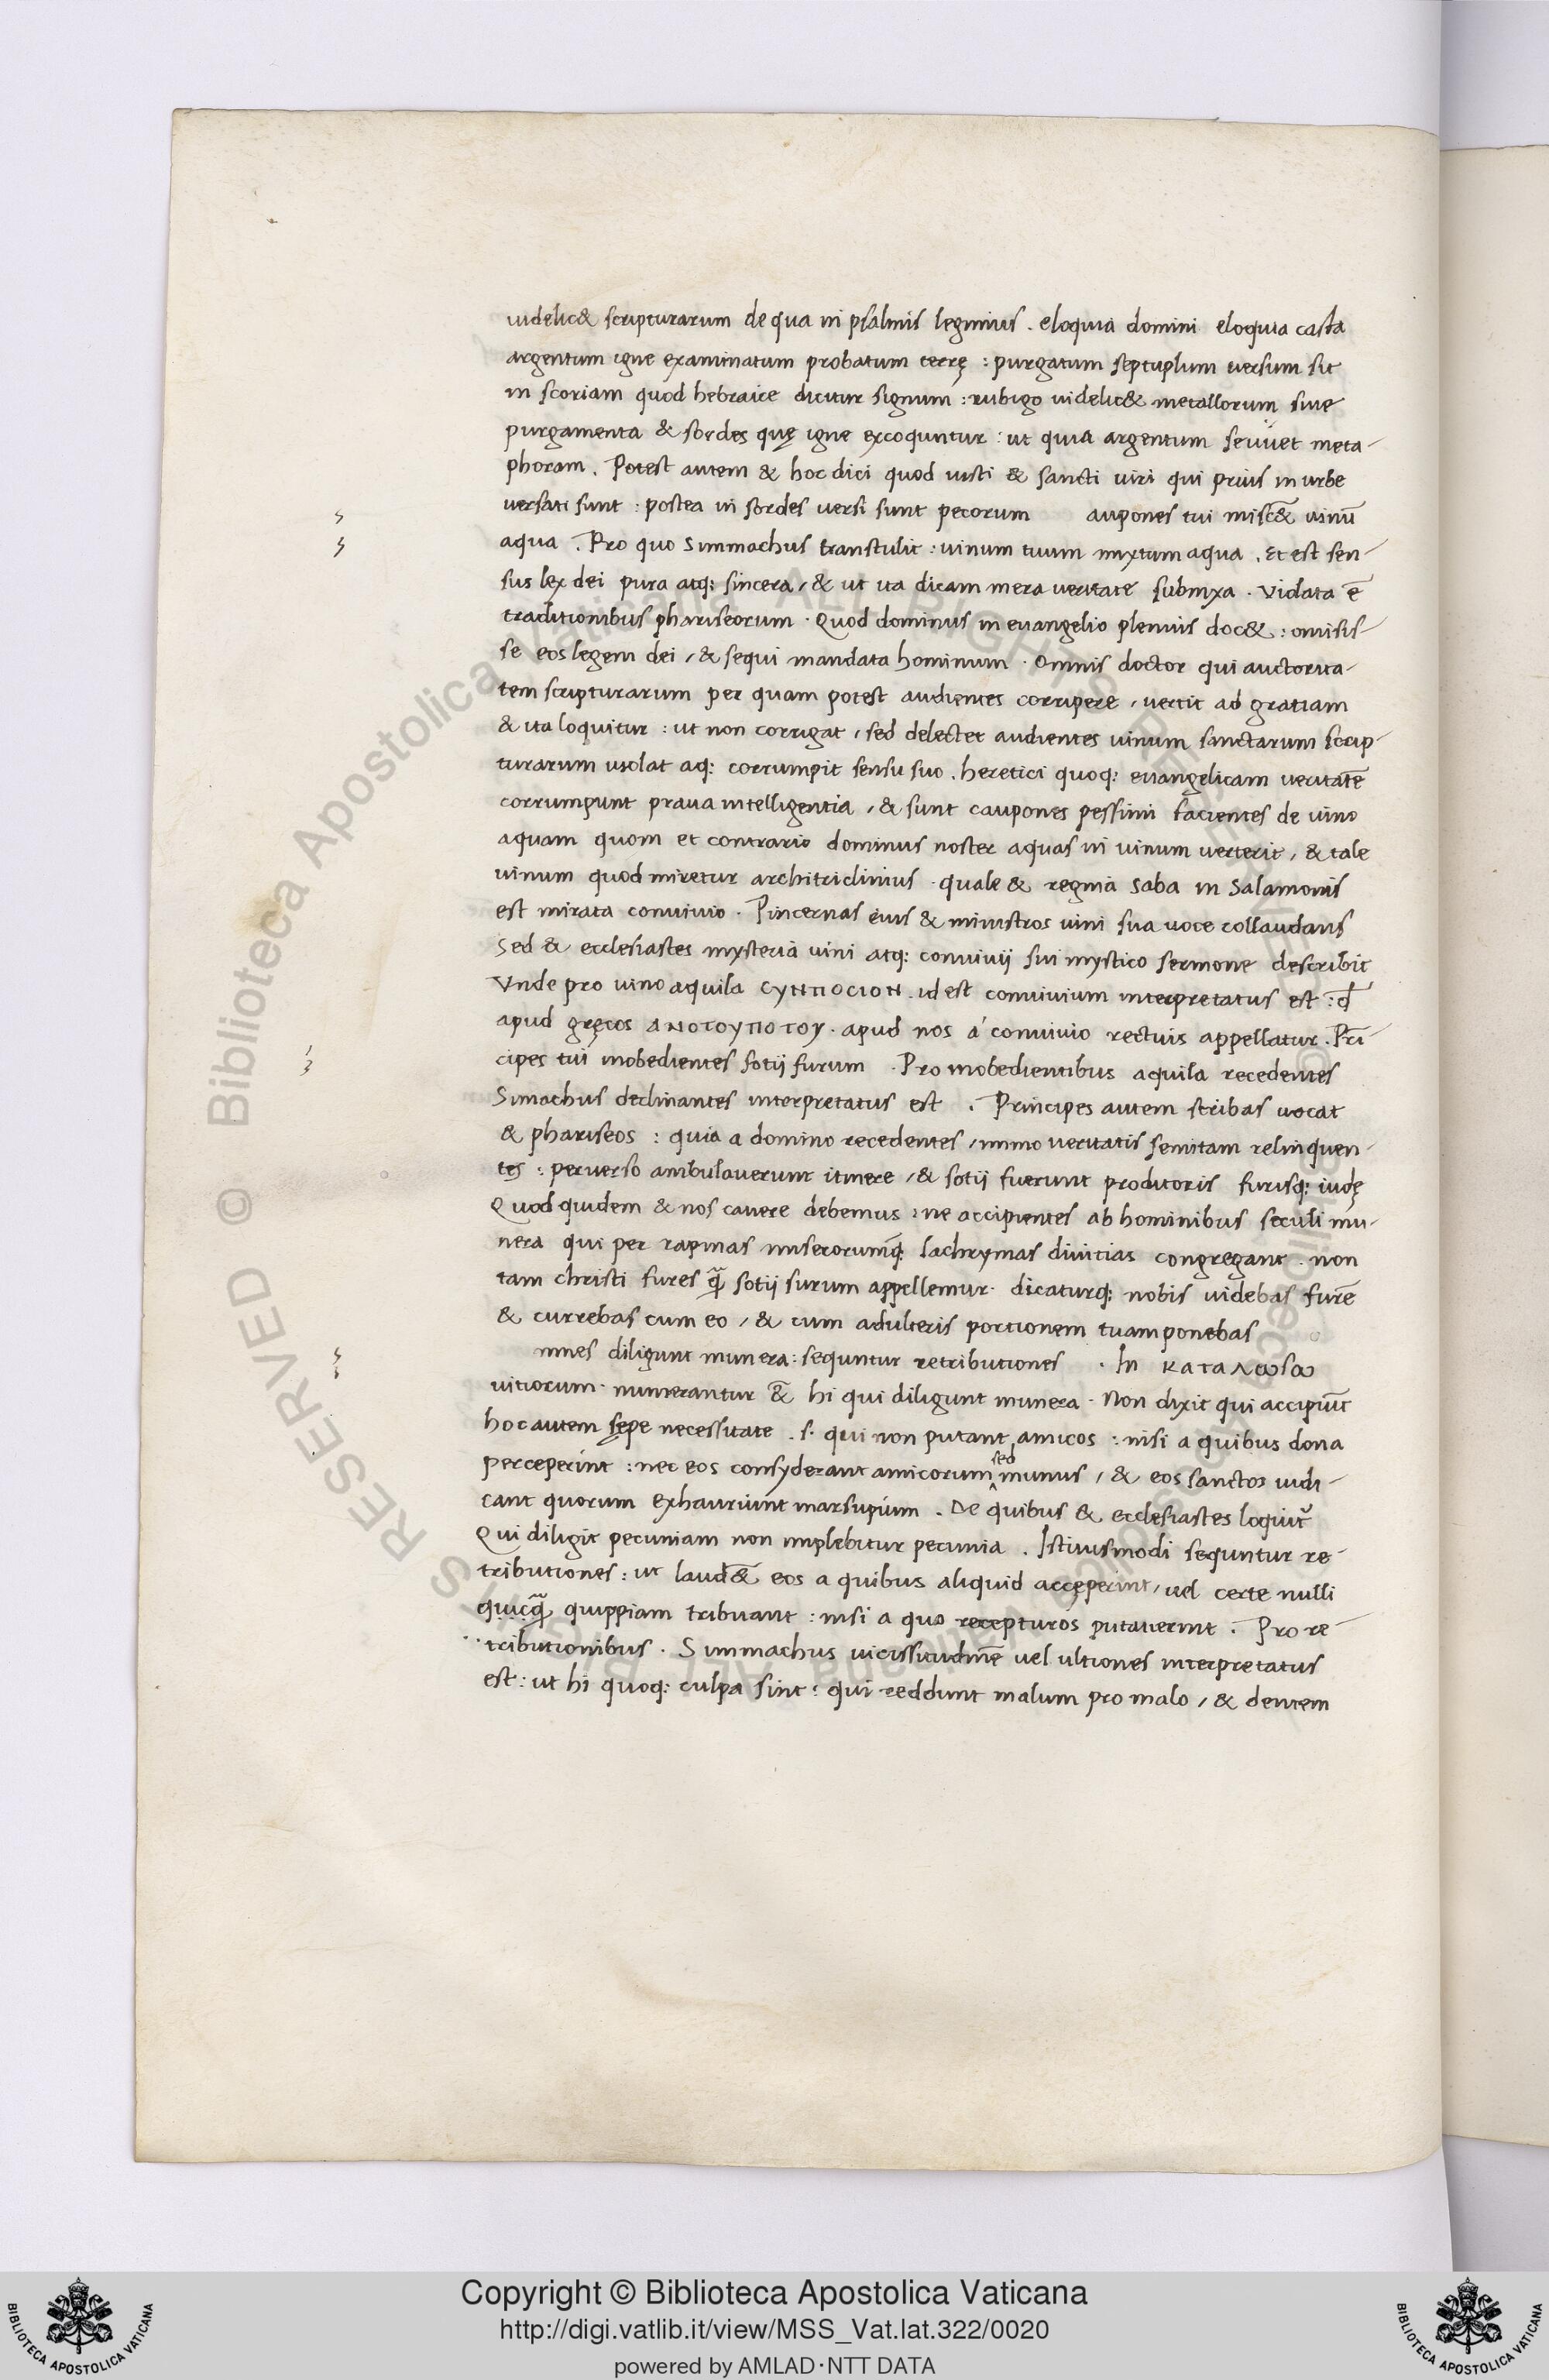 uidelic& scripturarum de qua in psalmis legimus . eloquia domini eloquia casta
argentum igne examinatum probatum terrę : purgatum septuplum uersum sit
in scoriam quod hebraice dicitur signum : rubigo uidelic& metallorum siue
purgamenta & sordes quę igne excoquntur : ut quia argentum seruet meta-
phoram . Potest autem & hoc dici quod iusti & sancti uiri qui prius in urbe
uersati sunt : postea in sordes uersi sunt pecorum aupones tui misc& uinū
aqua . Pro quo Simmachus transtulit : uinum tuum mixtum aqua . Et est sen-
sus lex dei pura atq: sincera / & ut ita dicam mera ueritate subnixa . Vidata ē
traditionibus phariseorum . Quod dominus in euangelio plenius doc& : omisis-
se eos legem dei / & sequi mandata hominum . Omnis doctor qui auctorita-
tem scripturarum per quam potest audientes corripere / uertit ad gratiam
& ita loquitur : ut non corrigat / sed delectet audientes uinum sanctarum scrip-
turarum uiolat aq: corrumpit sensu suo . heretici quoq: euangelicam ueritatē
corrumpunt praua intelligentia / & sunt caupones pessimi facientes de uino
aquam quom et contrario dominus noster aquas in uinum uerterit / & tale
uinum quod miretur architriclinius . quale & regina saba in Salamonis
est mirata conuiuio . Pincernas eius & ministros uini sua uoce collaudans
Sed & ecclesiastes mysteria uini atq: conuiuij sui mystico sermone describit
Vnde pro uino aquila CYΝΠΟCΙΟΝ . id est conuiuium interpretatus est : qđ
apud gręcos ΑΝΟΤΟΥΠΟΤΟΥ . apud nos á conuiuio rectuis appellatur . Pri̅
cipes tui inobedientes sotij furum . Pro inobedientibus aquila recedentes
Simachus declinantes interpretatus est . Principes autem scribas uocat
& phariseos : quia a domino recedentes / immo ueritatis semitam relinquen-
tes : peruerso ambulauerunt itinere / & sotij fuerunt proditoris furisq: iudę
Quod quidem & nos cauere debemus : ne accipientes ab hominibus seculi mu-
nera qui per rapinas miserorumq: lachrymas diuitias congregant . non
tam christi fures q̃ sotij surum appellemur . dicaturq: nobis uidebas furē
& currebas cum eo / & cum adulteris portionem tuam ponebas
mnes diligunt munera : sequntur retributiones . In ΚΑΤΑΛωSω
uitiorum . numerantur &̄ hi qui diligunt munera . Non dixit qui accipiūt
hoc autem sępe necessitate . s. qui non putant amicos : nisi a quibus dona
perceperint : nec eos consyderant amicorum sed munus / & eos sanctos iudi-
cant quorum exhauriunt marsupium . De quibus & ecclesiastes loquit̄
Qui diligit pecuniam non implebitur pecunia . Istiusmodi sequntur re-
tributiones : ut laud& eos a quibus aliquid accęperint / uel certe nulli
quicq̃ quippiam tribuant : nisi a quo recepturos putauerint . Pro re-
tributionibus . Simmachus uicissitudinē uel ultiones interpretatus
est : ut hi quoq: culpa sint : qui reddunt malum pro malo / & dentem
Copyright © Biblioteca Apostolica Vaticana
http://digi.vatlib.it/view/MSS_Vat.lat.322/0020
powered by AMLAD·NTT DATA